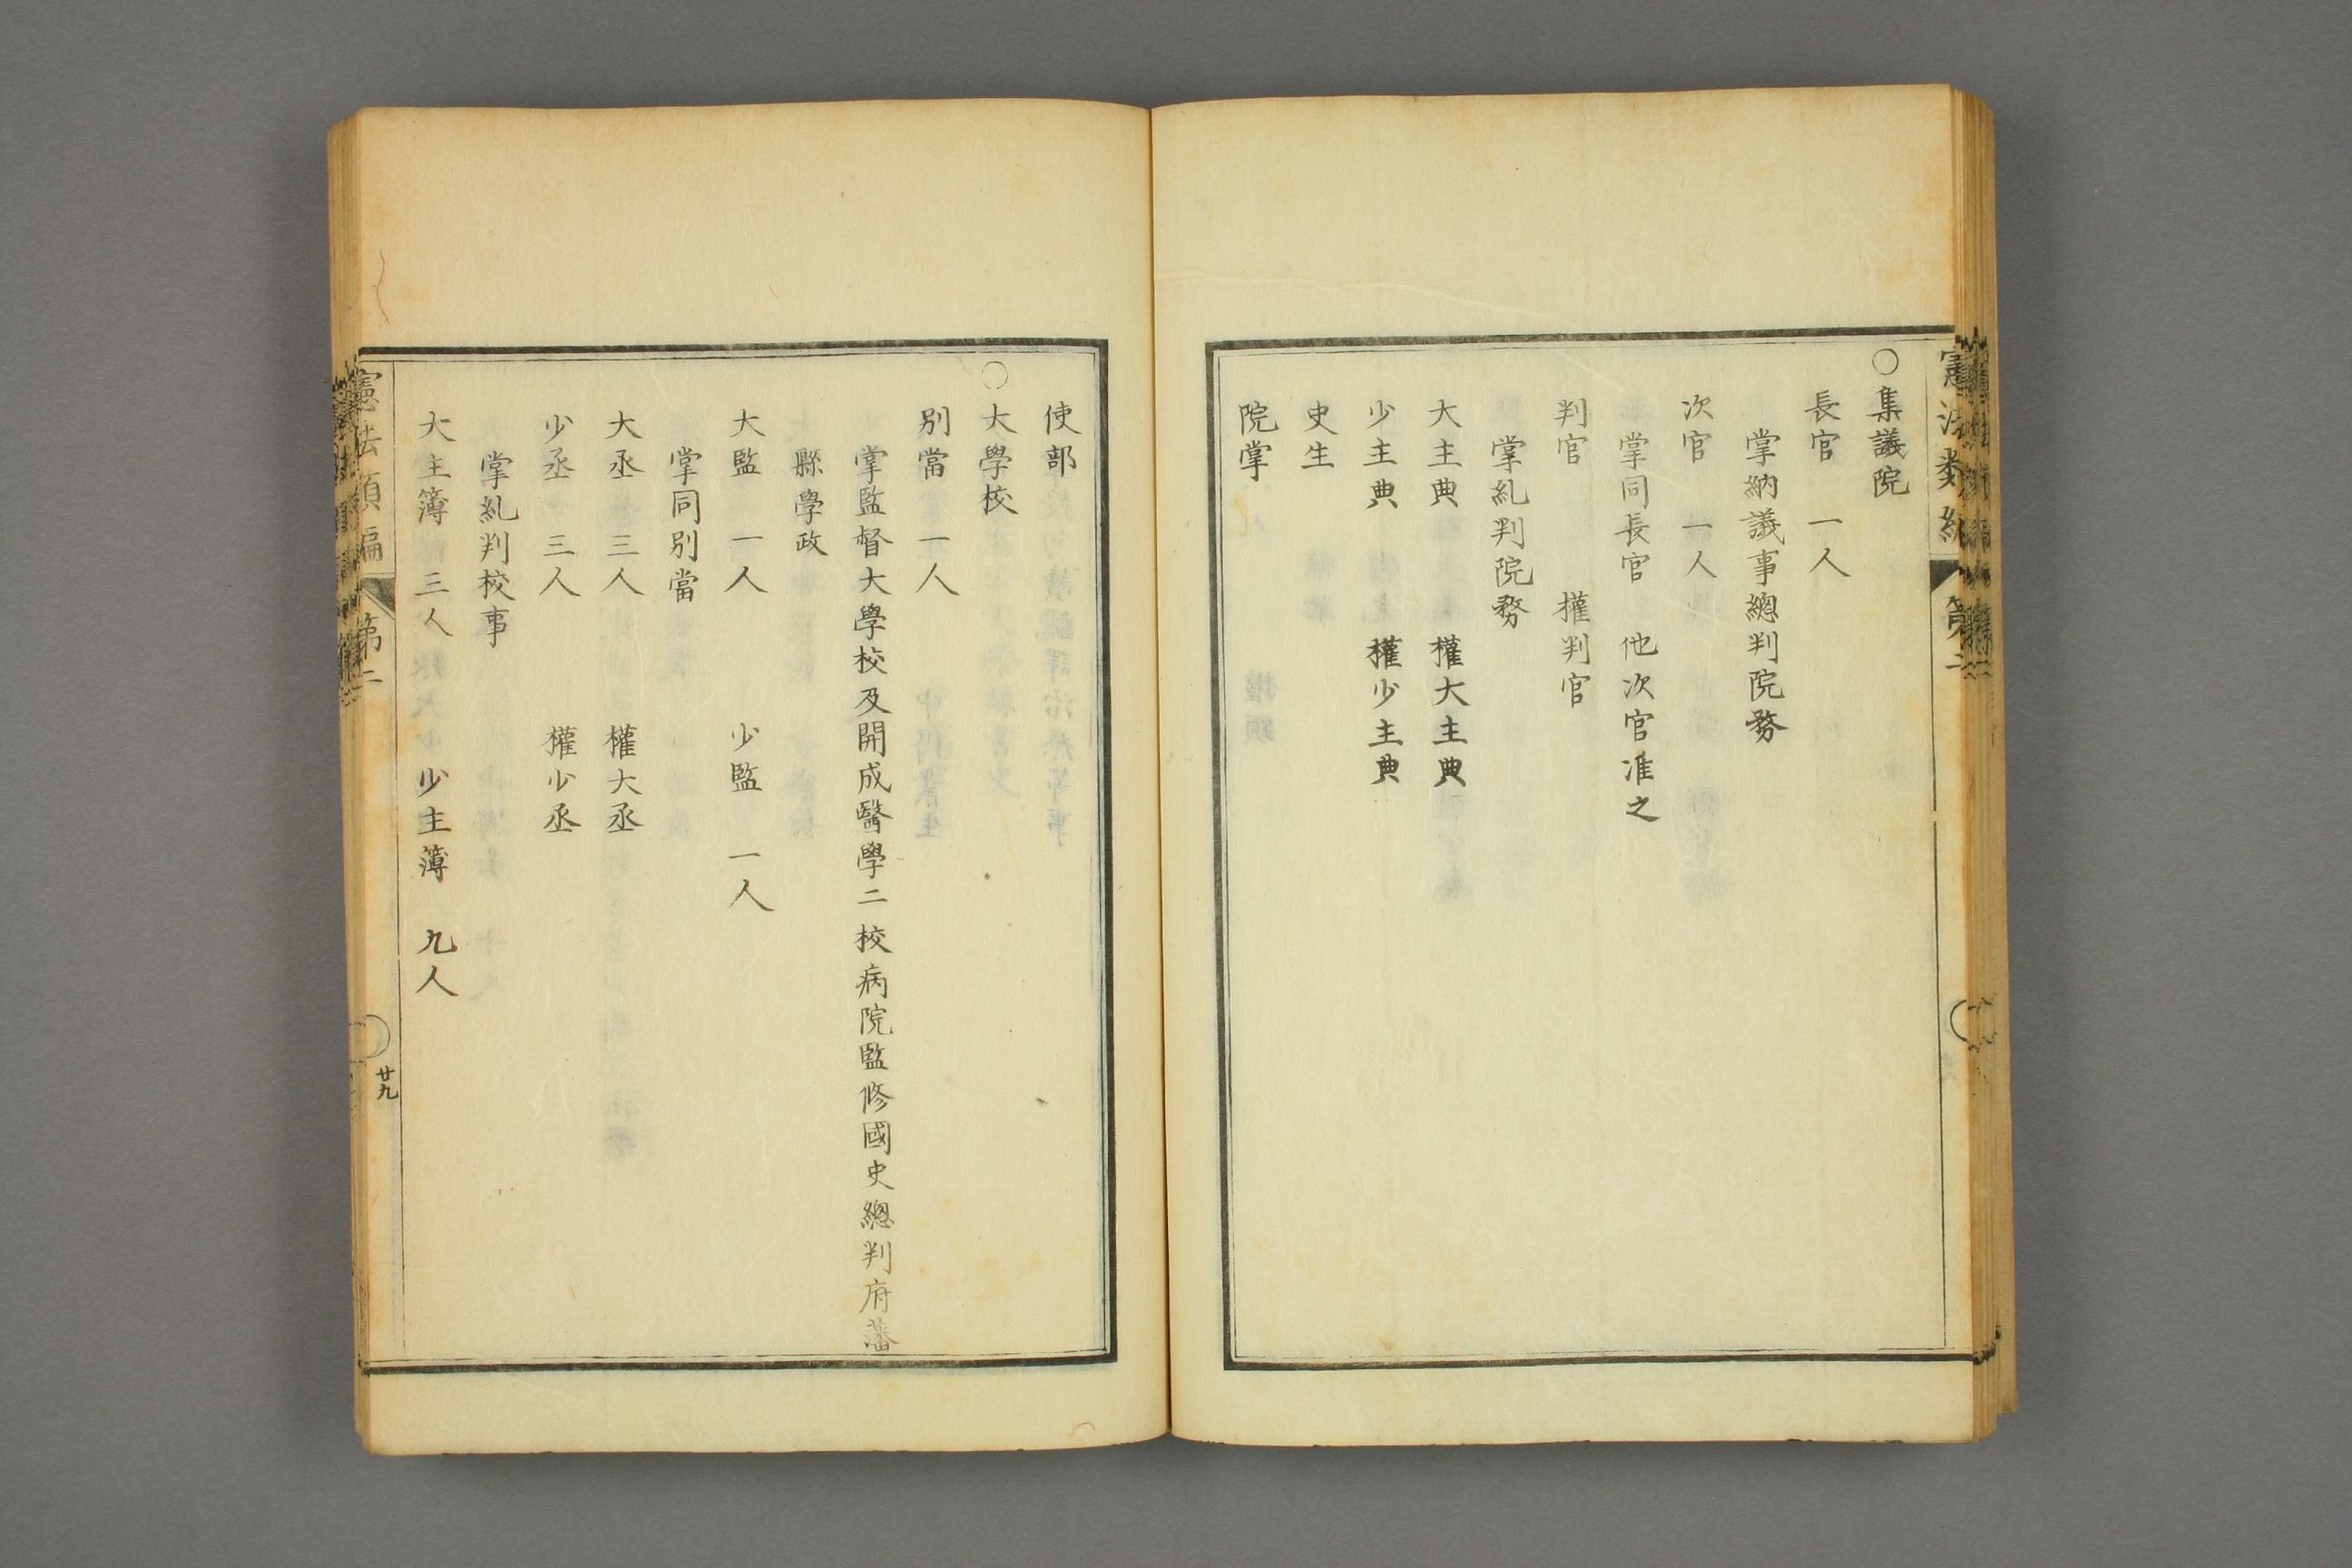 ○集議院
長官 一人
掌納議事總判院務
次官 一人
掌同長官 他次官准之
判官 權判官
掌糺判院務
大主典 權大主典
少主典 權少主典
史生
院掌
使部
○大學校
別當 一人
掌監督大學校及開成醫學二校病院監修國史總判府藩
縣學政
大監 一人 少監 一人
掌同別當
大丞 三人 權大丞
少丞 三人 權少丞
掌糺判校事
大主簿 三人 少主簿 九人
憲法類編 第二
廿九